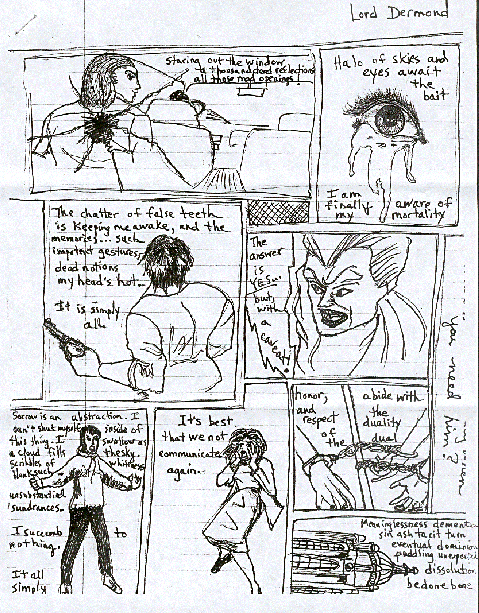 Lord Dermond
staring out the window
a thousand dead reflections
all those mad openings!
Halo of skies and
eyes await
the
bait
I am
finally aware of
my mortality
The chatter of false teeth
is keeping me awake, and the
memories... such
impotent gestures,
dead notions
my head's hot...
It is simply
all.
The
answer
is
YES...
but
with
a
caveat!
you need
him?
Sorrow is an abstraction. I
can't shut myself inside of
this thing. I swallow as
a cloud fills the sky.
scribbles of whiteness
unsubstantial
sundrances.
I succomb to
nothing.
It all
simply
It's best
that we not
communicate
again.
honor,
and
respect
of
the
abide with
the
duality
dual
Meaninglessness
sin ash tacit turn
eventual dominion
puddling
dissolution
be done